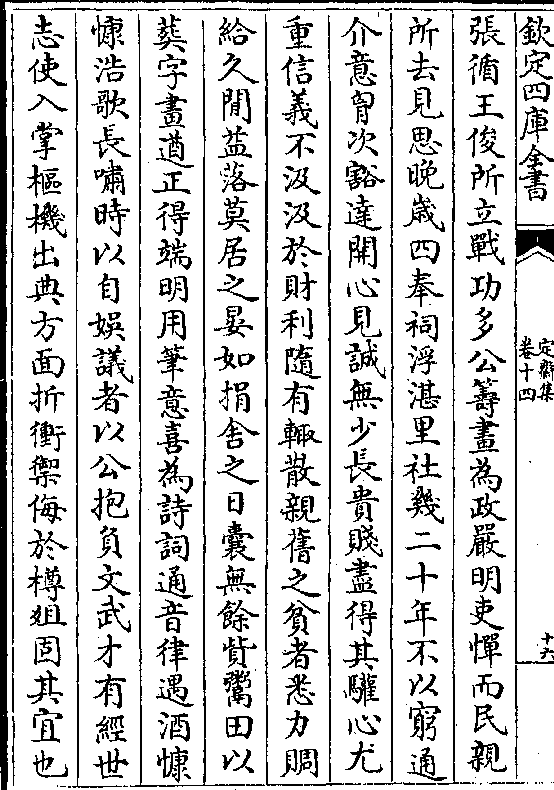 欽定四庫全書
定齋集
卷十四
十六
張循王俊所立戰功多公籌畫為政嚴明吏憚而民親
所去見思晚嵗四奉祠浮湛里社幾二十年不以窮通
介意胷次豁達開心見誠無少長貴賤盡得其驩心尤
重信義不汲汲於財利隨有輙散親舊之貧者悉力賙
給久閒益落莫居之晏如捐舍之日囊無餘貲鬻田以
葬字畫遒正得端明用筆意喜為詩詞通音律遇酒慷
慷浩歌長嘯時以自娯議者以公抱負文武才有經世
志使入掌樞機出典方面折衝禦侮於樽俎固其宜也